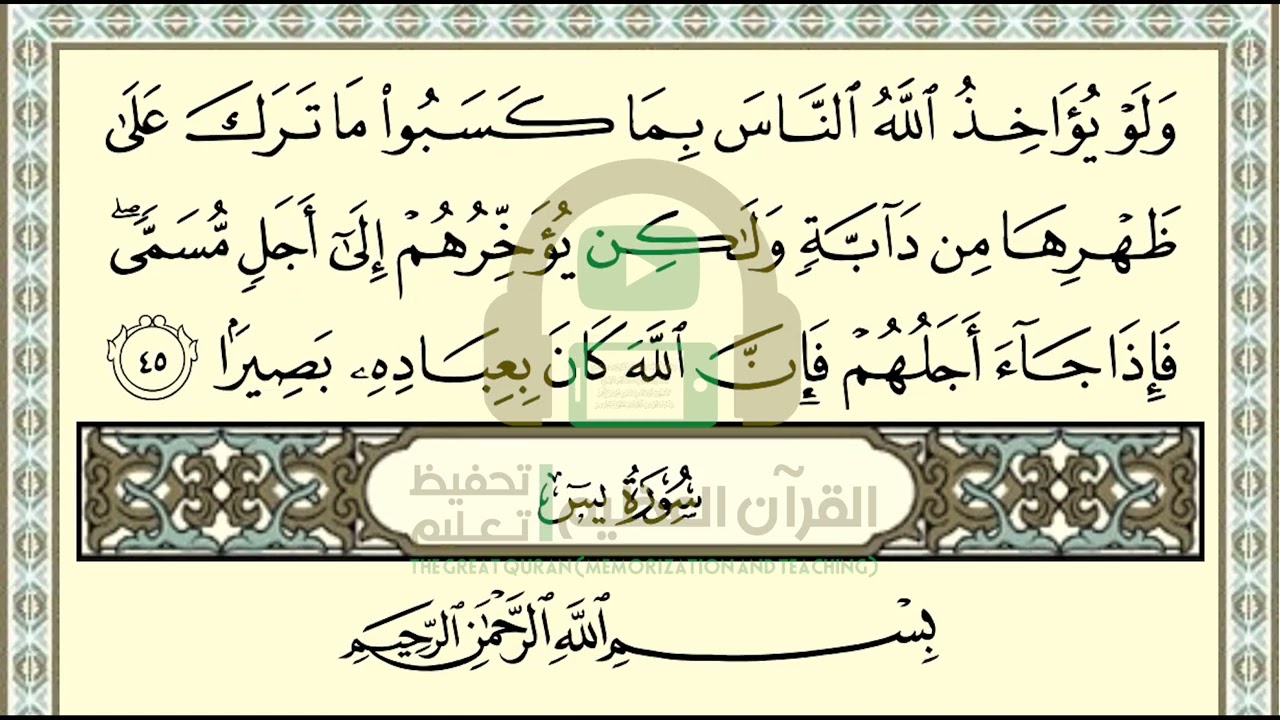 وَلَوۡ يُؤَاخِذُ ٱللَّهُ ٱلنَّاسَ بِمَا كَسَبُواْ مَا تَرَكَ عَلَىٰ
ظَهۡرِهَا مِن دَآبَّةٖ وَلَٰكِن يُؤَخِّرُهُمۡ إِلَىٰٓ أَجَلٖ مُّسَمّٗىۖ
فَإِذَا جَآءَ أَجَلُهُمۡ فَإِنَّ ٱللَّهَ كَانَ بِعِبَادِهِۦ بَصِيرَۢا ٤٥
سُورَةُ يسٓ
القرآن العظيم تحفيظ تعليم
THE GREAT QURAN (MEMORIZATION AND TEACHING)
بِسۡمِ ٱللَّهِ ٱلرَّحۡمَٰنِ ٱلرَّحِيمِ